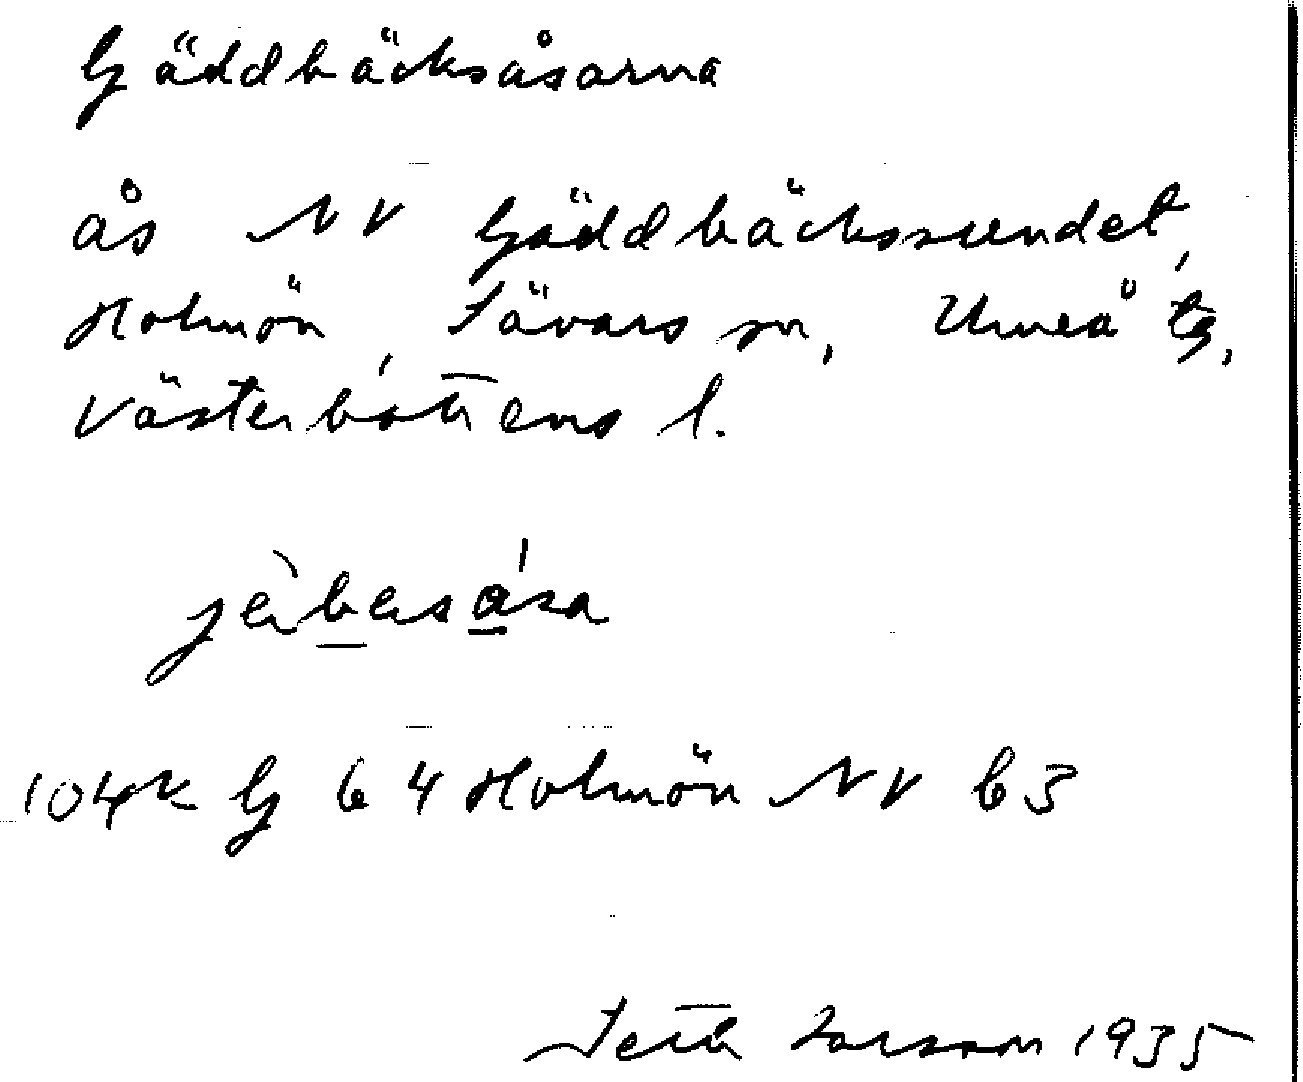 Gäddbäcksåsarna
ås NV Gäddbäckssundet,
Holmön, Sävars sn, Umeå tg,
Västerbottens l.
104k G 64 Holmön NV b3
Seth Larsson 1935